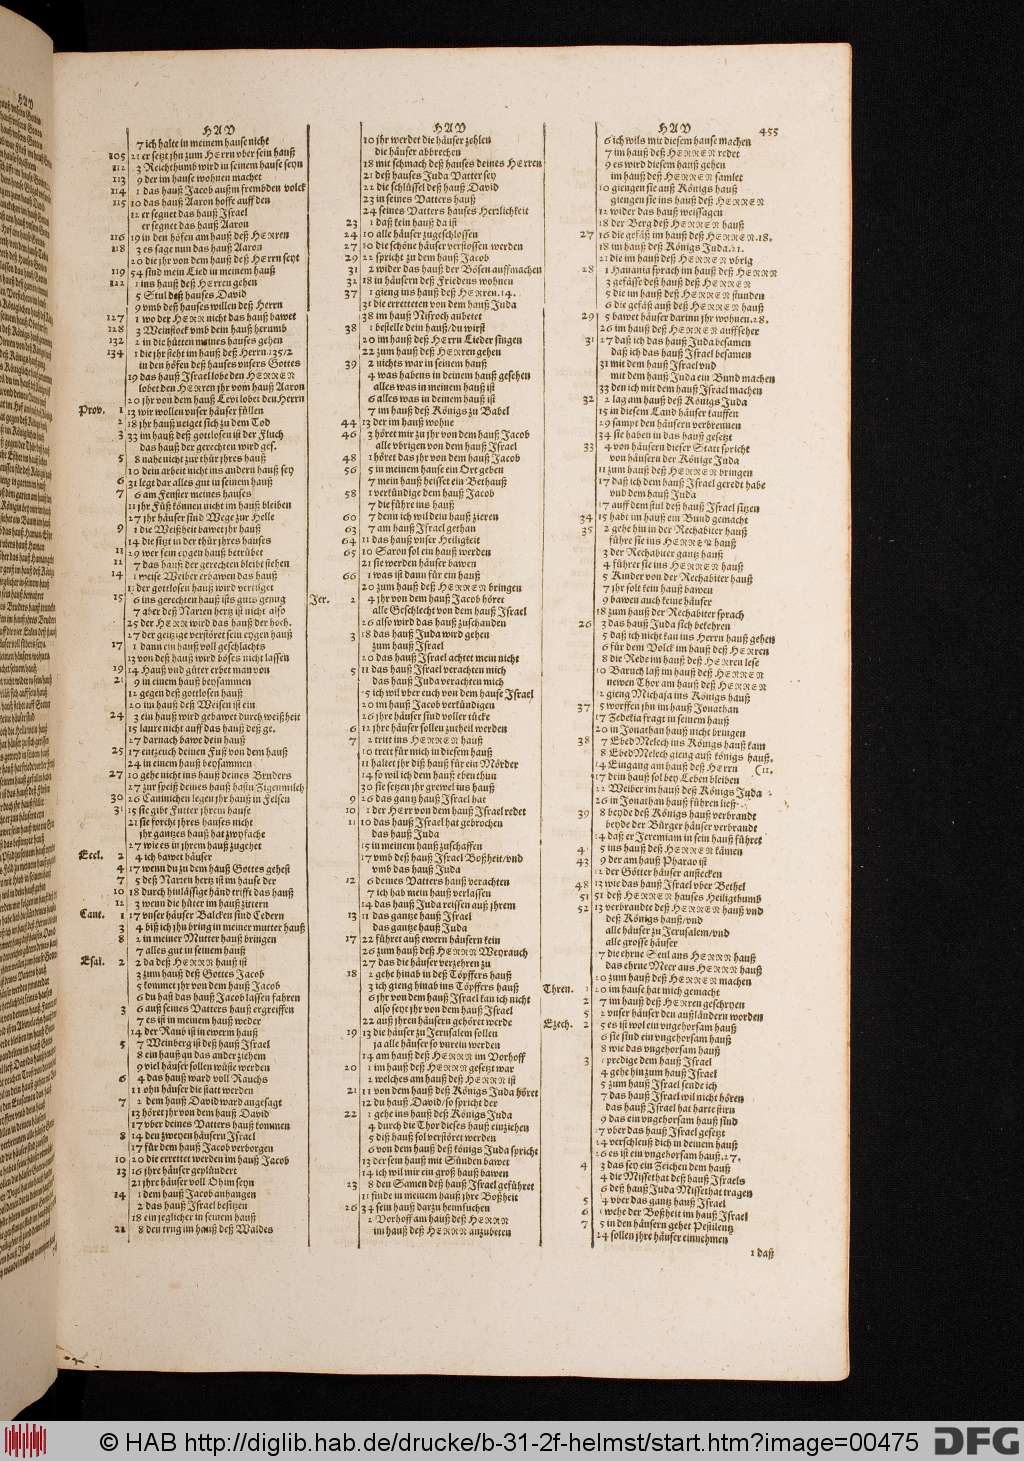 HAV
7 ich halte in meinem hause nicht
105 21 er setzt jhn zum HErrn vber sein hauß
112 3 Reichthumb wird in seinem hause seyn
113 9 der im hause wohnen machet
114 1 das hauß Jacob auß m frembden volck
115 10 das hauß Aaron hoffe auff den
12 er segnet das hauß Israel
er segnet das hauß Aaron
116 19 in den höfen am hauß deß HErren
118 3 es sage nun das hauß Aaron
20 die jhr von dem hauß deß HErrn seyt
119 54 sind mein Lied in meinem hauß
122 1 ins hauß deß HErren gehen
5 Stul deß hauses David
9 vmb deß hauses willen deß Herrn
127 1 wo der HERR nicht das hauß bawet
128 3 Weinstock vmb dein hauß herumb
132 2 in die hütten meines hauses gehen
134 1 die jhr steht im hauß deß Herrn 135/2
in den höfen deß hauses vnsers Gottes
19 das hauß Israel lobe den HERREN
lobet den HErren jhr vom hauß Aaron
20 jhr von dem hauß Levi lobet den Herrn
Prov. 1 13 wir wollen vnser häuser füllen
2 18 jhr hauß neiget sich zu dem Tod
3 33 im hauß deß gottlosen ist der Fluch
das hauß der gerechten wird ges.
5 8 nahe nicht zur thür jhres hauß
10 dein arbeit nicht ins andern hauß sey
6 31 legt dar alles gut in seinem hauß
7 6 am Fenster meines hauses
11 jhr Füß können nicht im hauß bleiben
27 jhr häuser sind Wege zur Helle
9 1 die Weißheit bawet jhr hauß
14 die sitzt in der thür jhres hauses
11 29 wer sein eygen hauß betrübet
12 7 das hauß der gerechten bleibt stehen
14 1 weise Weiber erbawen das hauß
11 der gottlosen hauß wird vertilget
15 6 ins gerechten hauß ists guts genug
7 aber deß Narren hertz ist nicht also
25 der HERR wird das hauß der hoch.
27 der geitzige verstöret sein eygen hauß
17 1 dann ein hauß voll geschlachts
13 von deß hauß wird böses nicht lassen
19 14 Hauß vnd güter erbet man von
21 9 in einem hauß beysammen
12 gegen deß gottlosen hauß
20 im hauß deß Weisen ist ein
24 3 ein hauß wird gebawet durch weißheit
15 laure nicht auff das hauß deß ge.
27 darnach bawe dein hauß
25 17 entzeuch deinen Fuß von dem hauß
24 in einem hauß beysammen
27 10 gehe nicht ins hauß deines Bruders
27 zur speiß deines hauß hastu Zigenmilch
30 26 Caninichen legen jhr hauß in Felsen
31 15 sie gibt Futter jhrem hause
21 sie förcht jhres hauses nicht
jhr gantzes hauß hat zwyfache
27 wie es in jhrem hauß zugehet
Eccl. 2 4 ich bawet häuser
4 17 wenn du zu dem hauß Gottes gehest
7 5 deß Narren hertz ist im hause der
10 18 durch hinlässige händ trifft das hauß
12 3 wenn die hüter im hauß zittern
Cant. 1 17 vnser häuser Balcken sind Cedern
3 4 biß ich jhn bring in meiner mutter hauß
8 2 in meiner Mutter hauß bringen
7 alles gut in seinem hauß
Esai. 2 2 da deß HERRN hauß ist
3 zum hauß deß Gottes Jacob
5 kommet jhr von dem hauß Jacob
6 du hast das hauß Jacob lassen fahren
3 6 auß seines Vatters hauß ergreiffen
7 es ist in meinem hauß weder
14 der Raub ist in ewerm hauß
5 7 Weinberg ist deß hauß Israel
8 ein hauß an das ander ziehem
9 viel häuser sollen wüste werden
6 4 das hauß ward voll Rauchs
11 ohn häuser die statt werden
7 2 dem hauß David ward angesagt
13 höret jhr von dem hauß David
17 vber deines Vatters hauß kommen
8 14 den zweyen häusern Israel
17 für dem hauß Jacob verborgen
10 20 die errettet werden im hauß Jacob
13 16 jhre häuser geplündert
21 jhr häuser voll Ohim seyn
14 1 dem hauß Jacob anhangen
2 das hauß Israel besitzen
18 ein jeglicher in seinem hauß
22 8 den zeug im hauß deß Waldes
HAV
10 jhr werdet die häuser zehlen
die häuser abbrechen
18 mit schmach deß hauses deines HErren
21 deß hauses Juda Vatter sey
22 die schlüssel deß hauß David
23 in seines Vatters hauß
24 seines Vatters hauses Herrlichkeit
23 1 daß kein hauß da ist
24 10 alle häuser zugeschlossen
27 10 die schöne häuser verstossen werden
29 22 spricht zu dem hauß Jacob
31 2 wider das hauß der Bösen auffmachen
32 18 in häusern deß Friedens wohnen
37 1 gieng ins hauß deß HErren. 14.
31 die erretteten von dem hauß Juda
38 im hauß Nisroch anbetet
38 1 bestelle dein hauß/du wirst
20 im hauß deß HErrn Lieder singen
22 zum hauß deß HErren gehen
39 2 nichts war in seinem hauß
4 was habens in deinem hauß gesehen
alles was in meinem hauß ist
6 alles was in deinem hauß ist
7 im hauß deß Königs zu Babel
44 13 der im hauß wohne
46 3 höret mir zu jhr von dem hauß Jacob
alle vbrigen von dem hauß Israel
48 1 höret das jhr von dem hauß Jacob
56 5 in meinem hause ein Ort geben
7 mein hauß heisset ein Bethauß
58 1 verkündige dem hauß Jacob
7 die führe ins hauß
60 7 denn ich wil dein hauß zieren
63 7 am hauß Israel gethan
64 11 das hauß vnser Heiligkeit
65 10 Saron sol ein hauß werden
21 sie werden häuser bawen
66 1 was ist dann für ein hauß
20 zum hauß deß HERREN bringen
Jer. 2 4 jhr von dem hauß Jacob höret
alle Geschlecht von dem hauß Israel
26 also wird das hauß zuschanden
3 18 das hauß Juda wird gehen
zum hauß Israel
20 das hauß Israel achtet mein nicht
5 11 das hauß Israel verachten mich
das hauß Juda verachten mich
15 ich wil vber euch von dem hause Israel
20 im hauß Jacob verkündigen
26 jhre häuser sind voller tücke
6 12 jhre häuser sollen zutheil werden
7 2 tritt ins HERREN hauß
10 trett für mich in diesem hauß
11 haltet jhr diß hauß für ein Mörder
14 so wil ich dem hauß eben thun
30 sie setzen jhr grewel ins hauß
9 26 das gantz hauß Israel hat
10 1 der HErr von dem hauß Israel redet
11 10 das hauß Israel hat gebrochen
das hauß Juda
15 in meinem hauß zuschaffen
17 vmb deß hauß Israel Boßheit/vnd
vmb das hauß Juda
12 6 deines Vatters hauß verachten
7 ich hab mein hauß verlassen
14 das hauß Juda reissen auß jhrem
13 11 das gantze hauß Israel
das gantze hauß Juda
17 22 führet auß ewern häusern kein
26 zum hauß deß HERRN Weyrauch
27 das die häuser verzehren zu
18 2 gehe hinab in deß Töpffers hauß
3 ich gieng hinab ins Töpffers hauß
6 jhr von dem hauß Israel kan ich nicht
also seyt jhr von dem hauß Israel
22 auß jhren häusern gehöret werde
19 13 die häuser zu Jerusalem sollen
ja alle häuser so vnrein werden
14 am hauß deß HERRN im Vorhoff
20 1 im hauß deß HERRN gesetzt war
2 welches am hauß deß HERRN ist
21 11 von dem hauß deß Königs Juda höret
12 du hauß David/so spricht der
22 1 gehe ins hauß deß Königs Juda
4 durch die Thor dieses hauß einziehen
5 diß hauß sol verstöret werden
6 von dem hauß deß königs Juda spricht
13 der sein hauß mit Sünden bawet
14 ich wil mir ein groß hauß bawen
23 8 den Samen deß hauß Israel geführet
11 finde in meinem hauß jhre Boßheit
34 sein hauß darzu heimsuchen
26 2 Vorhoff am hauß deß HERRN
im hauß deß HERRN anzubeten
HAV 455
6 ich wils mit diesem hause machen
7 im hauß deß HERREN redet
9 es wird diesem hauß gehen
im hauß deß HERREN samlet
10 giengen sie auß Königs hauß
giengen sie ins hauß deß HERREN
12 wider das hauß weissagen
18 der Berg deß HERREN hauß
27 16 die gefäß im hauß deß HERREN. 18.
18 im hauß deß Königs Juda. 21.
21 die im hauß deß HERREN vbrig
28 1 Hanania sprach im hauß deß HERRN
3 gefässe deß hauß deß HERREN
5 die im hauß deß HERREN stunden
6 die gefäß auß deß HERREN hauß
29 5 bawet häuser darinn jhr wohnen. 28.
26 im hauß deß HERREN auffseher
31 27 daß ich das hauß Juda besamen
daß ich das hauß Israel besamen
31 mit dem hauß Israel vnd
mit dem hauß Juda ein Bund machen
33 den ich mit dem hauß Israel machen
32 2 lag am hauß deß Königs Juda
15 in diesem Land häuser kauffen
29 sampt den häusern verbrennen
34 sie haben in das hauß gesetzt
33 4 von häusern dieser Statt spricht
von häusern der Könige Juda
11 zum hauß deß HERREN bringen
17 daß ich dem hauß Israel geredt habe
vnd dem hauß Juda
17 auff dem stul deß hauß Israel sitzen
34 15 habt im hauß ein Bund gemacht
35 2 gehe hin in der Rechabiter hauß
führe sie ins HERREN hauß
3 der Rechabiter gantz hauß
4 führet sie ins HERREN hauß
5 Kinder von der Rechabiter hauß
7 jhr solt kein hauß bawen
9 bawen auch keine häuser
18 zum hauß der Rechabiter sprach
26 3 das hauß Juda sich bekehren
5 daß ich nicht kan ins Herrn hauß gehen
6 für dem Volck im hauß deß HErren
8 die Rede im hauß deß HErren lese
10 Baruch laß im hauß deß HERREN
newen Thor am hauß deß HERREN
12 gieng Michaja ins Königs hauß
37 15 worffen jhn im hauß Jonathan
17 Zedekia fragt in seinem hauß
20 in Jonathan hauß nicht bringen
38 7 EbedMelech ins Königs hauß kam
8 EbedMelech gieng auß königs hauß.
14 Eingang am hauß deß HErrn (11.
17 dein hauß sol bey Leben bleiben
22 Weiber im hauß deß Königs Juda
26 in Jonathan hauß führen ließ
39 8 beyde deß Königs hauß verbrandt
beyde der Bürger häuser verbrandt
14 daß er Jeremiam in sein hauß führet
4 5 ins hauß deß HERREN kämen
43 9 der am hauß Pharao ist
12 der Götter häuser anstecken
48 13 wie das hauß Israel vber Bethel
51 51 deß HERREN hauses Heiligthumb
52 13 verbrandte deß HERREN hauß vnd
deß Königs hauß/vnd
alle häuser zu Jerusalem/vnd
alle grosse häuser
17 die ehrne Seul ans HERRN hauß
das ehrne Meer ans HERRN hauß
20 zum hauß deß HERREN machen
Thren. 1 20 im hause hat mich gemacht
2 7 im hauß deß HErren geschryen
5 2 vnser häuser den außländern worden
Ezech. 2 5 es ist wol ein vngehorsam hauß
6 sie sind ein vngehorsam hauß
8 wie das vngehorsam hauß
3 1 predige dem hauß Israel
4 gehe hin zum hauß Israel
5 zum hauß Israel sende ich
7 das hauß Israel wil nicht hören
das hauß Israel hat harte stirn
9 das ein vngehorsam hauß sind
17 vber das hauß Israel gesetzt
24 verschleuß dich in deinem hauß
26 es ist ein vngehorsam hauß. 27.
4 3 das sey ein Zeichen dem hauß
4 die Missethat deß hauß Israels
6 deß hauß Juda Missethat tragen
5 4 vber das gantz hauß Israel
6 11 wehe der Boßheit im hauß Israel
7 15 in den häusern gehet Pestilentz
24 sollen jhre häuser einnehmen
1 daß
© HAB http://diglib.hab.de/drucke/b-31-2f-helmst/start.htm?image=00475
DFG